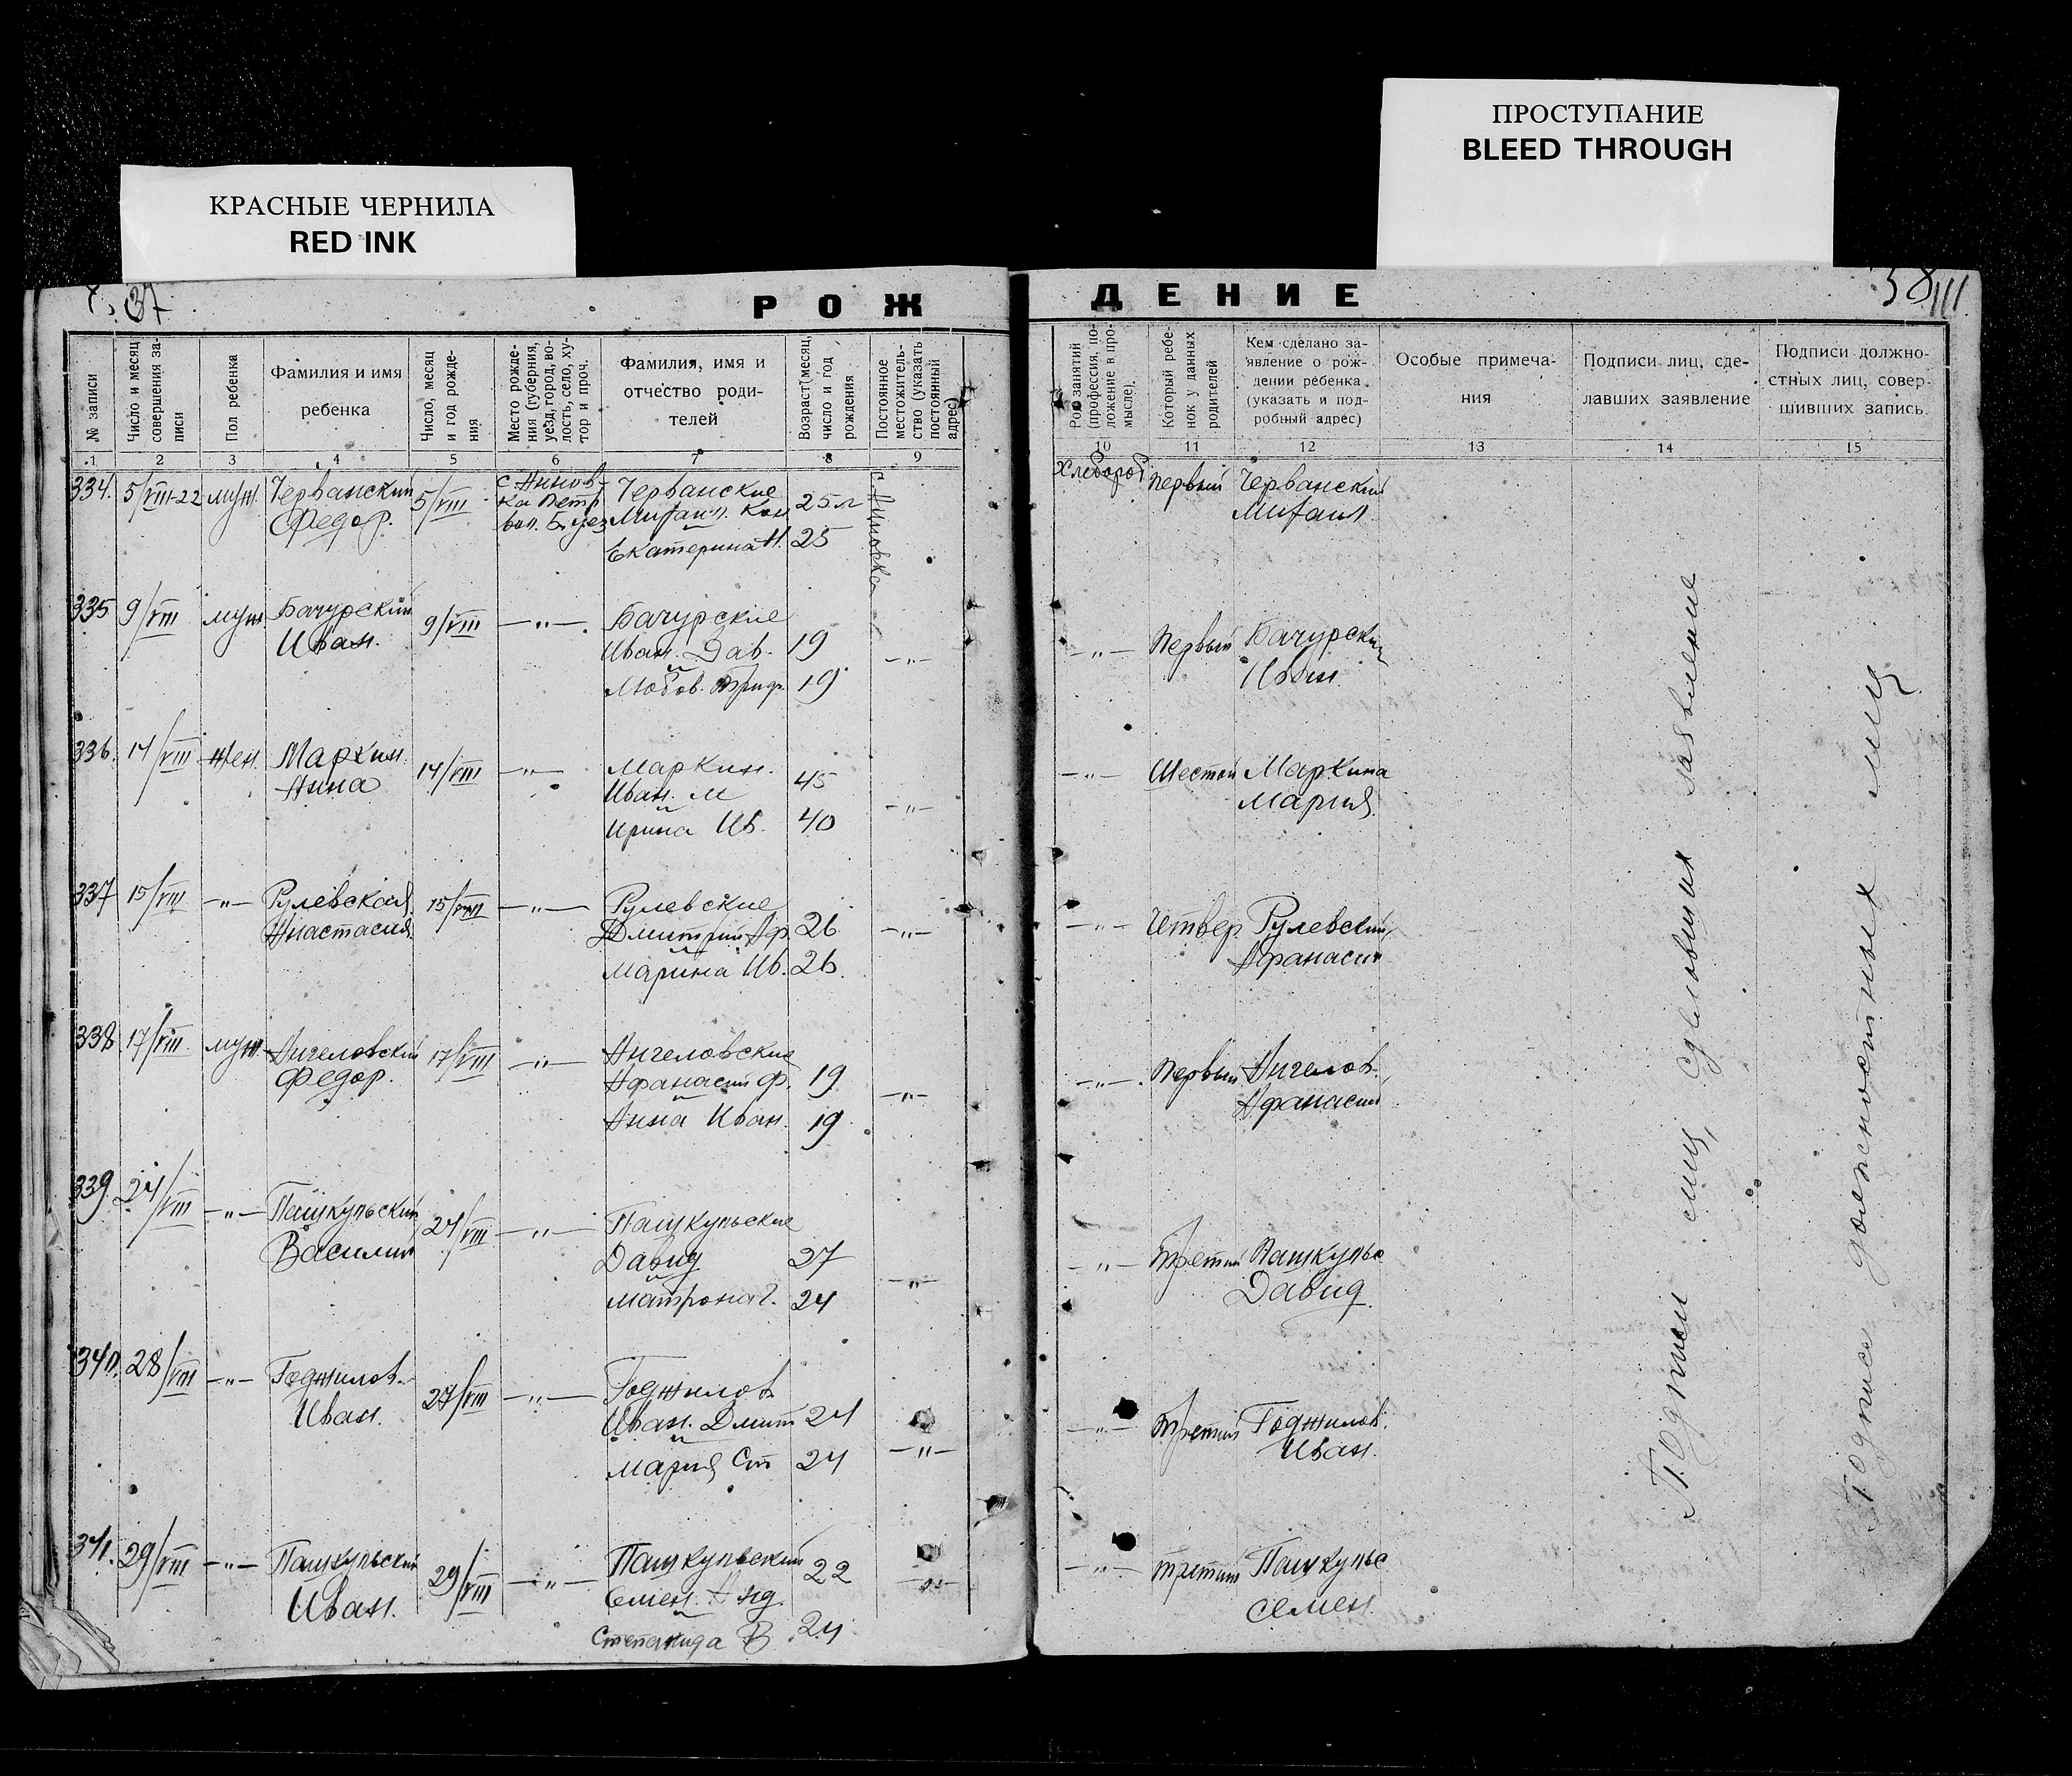 ПРОСТУПАНИЕ
BLEED THROUGH
КРАСНЫЕ ЧЕРНИЛА
RED INK
37
РОЖДЕНИЕ
38
№ записи
Число и месяц совершения записи
Пол ребенка
Фамилия и имя ребенка
Число, месяц и год рождения
Место рождения (губерния, уезд, город, волость, село, хутор и проч.
Фамилия, имя и отчество родителей
Возраст (месяц, число и год рождения
Постоянное местожительство (указать постоянный адрес)
Род занятий (профессия, положение в промысле).
Который ребенок у данных родителей
Кем сделано заявление о рождении ребенка (указать и подробный адрес)
Особые примечания
Подписи лиц, сделавших заявление
Подписи должностных лиц, совершивших запись.
1 2 3 4 5 6 7 8 9 10 11 12 13 14 15
334. 5/VIII-22 муж. Червански 5/VIII с Аннов- Червански 25 л с. Анновка Хлебороб первый Червански
Федор. ка Петр Михаил. Кон Михаил
вол. Б. уез и
Екатерина Н. 25
335 9/VIII муж Бачурский 9/VIII —„— Бачурские —„— —„— Первый Бачурски
Иван. Иван. Дав. 19 Иван
и
Любов. Триф. 19
336. 14/VIII Жен. Маркин. 14/VIII —„— Маркин. —„— —„— Шестой Маркина
Анна Иван. М 45 Мария.
и
Ирина Ив. 40
337 15/VIII —„— Рулевская 15/VIII —„— Рулевские —„— —„— Четвер. Рулевский
Анастасия. Дмитрий Аф. 26 Афанасий
и
Марина Ив. 26.
338. 17/VIII муж Ангеловский 17/VIII —„— Ангеловские —„— —„— Первый Ангелов.
Федор. Афанасий Ф. 19 Афанасий
и
Анна Иван. 19
339. 24/VIII —„— Пашкульский 24/VIII —„— Пашкульские —„— —„— Третий Пашкульс
Василий Давид 27 Давид
и
Матрона Г. 24
340. 28/VIII —„— Годжилов. 27/VIII —„— Годжилов —„— —„— Третий Годжилов.
Иван. Иван. Дмит 24 Иван.
и
Мария Ст 24
341. 29/VIII —„— Пашкульский 29/VIII —„— Пашкульский 22 —„— —„— третий Пашкульс
Иван. Семен. Анд. Семен.
и
Степанида В 24
Подписи лиц, сделовших заявление
Подписе должностных лиц